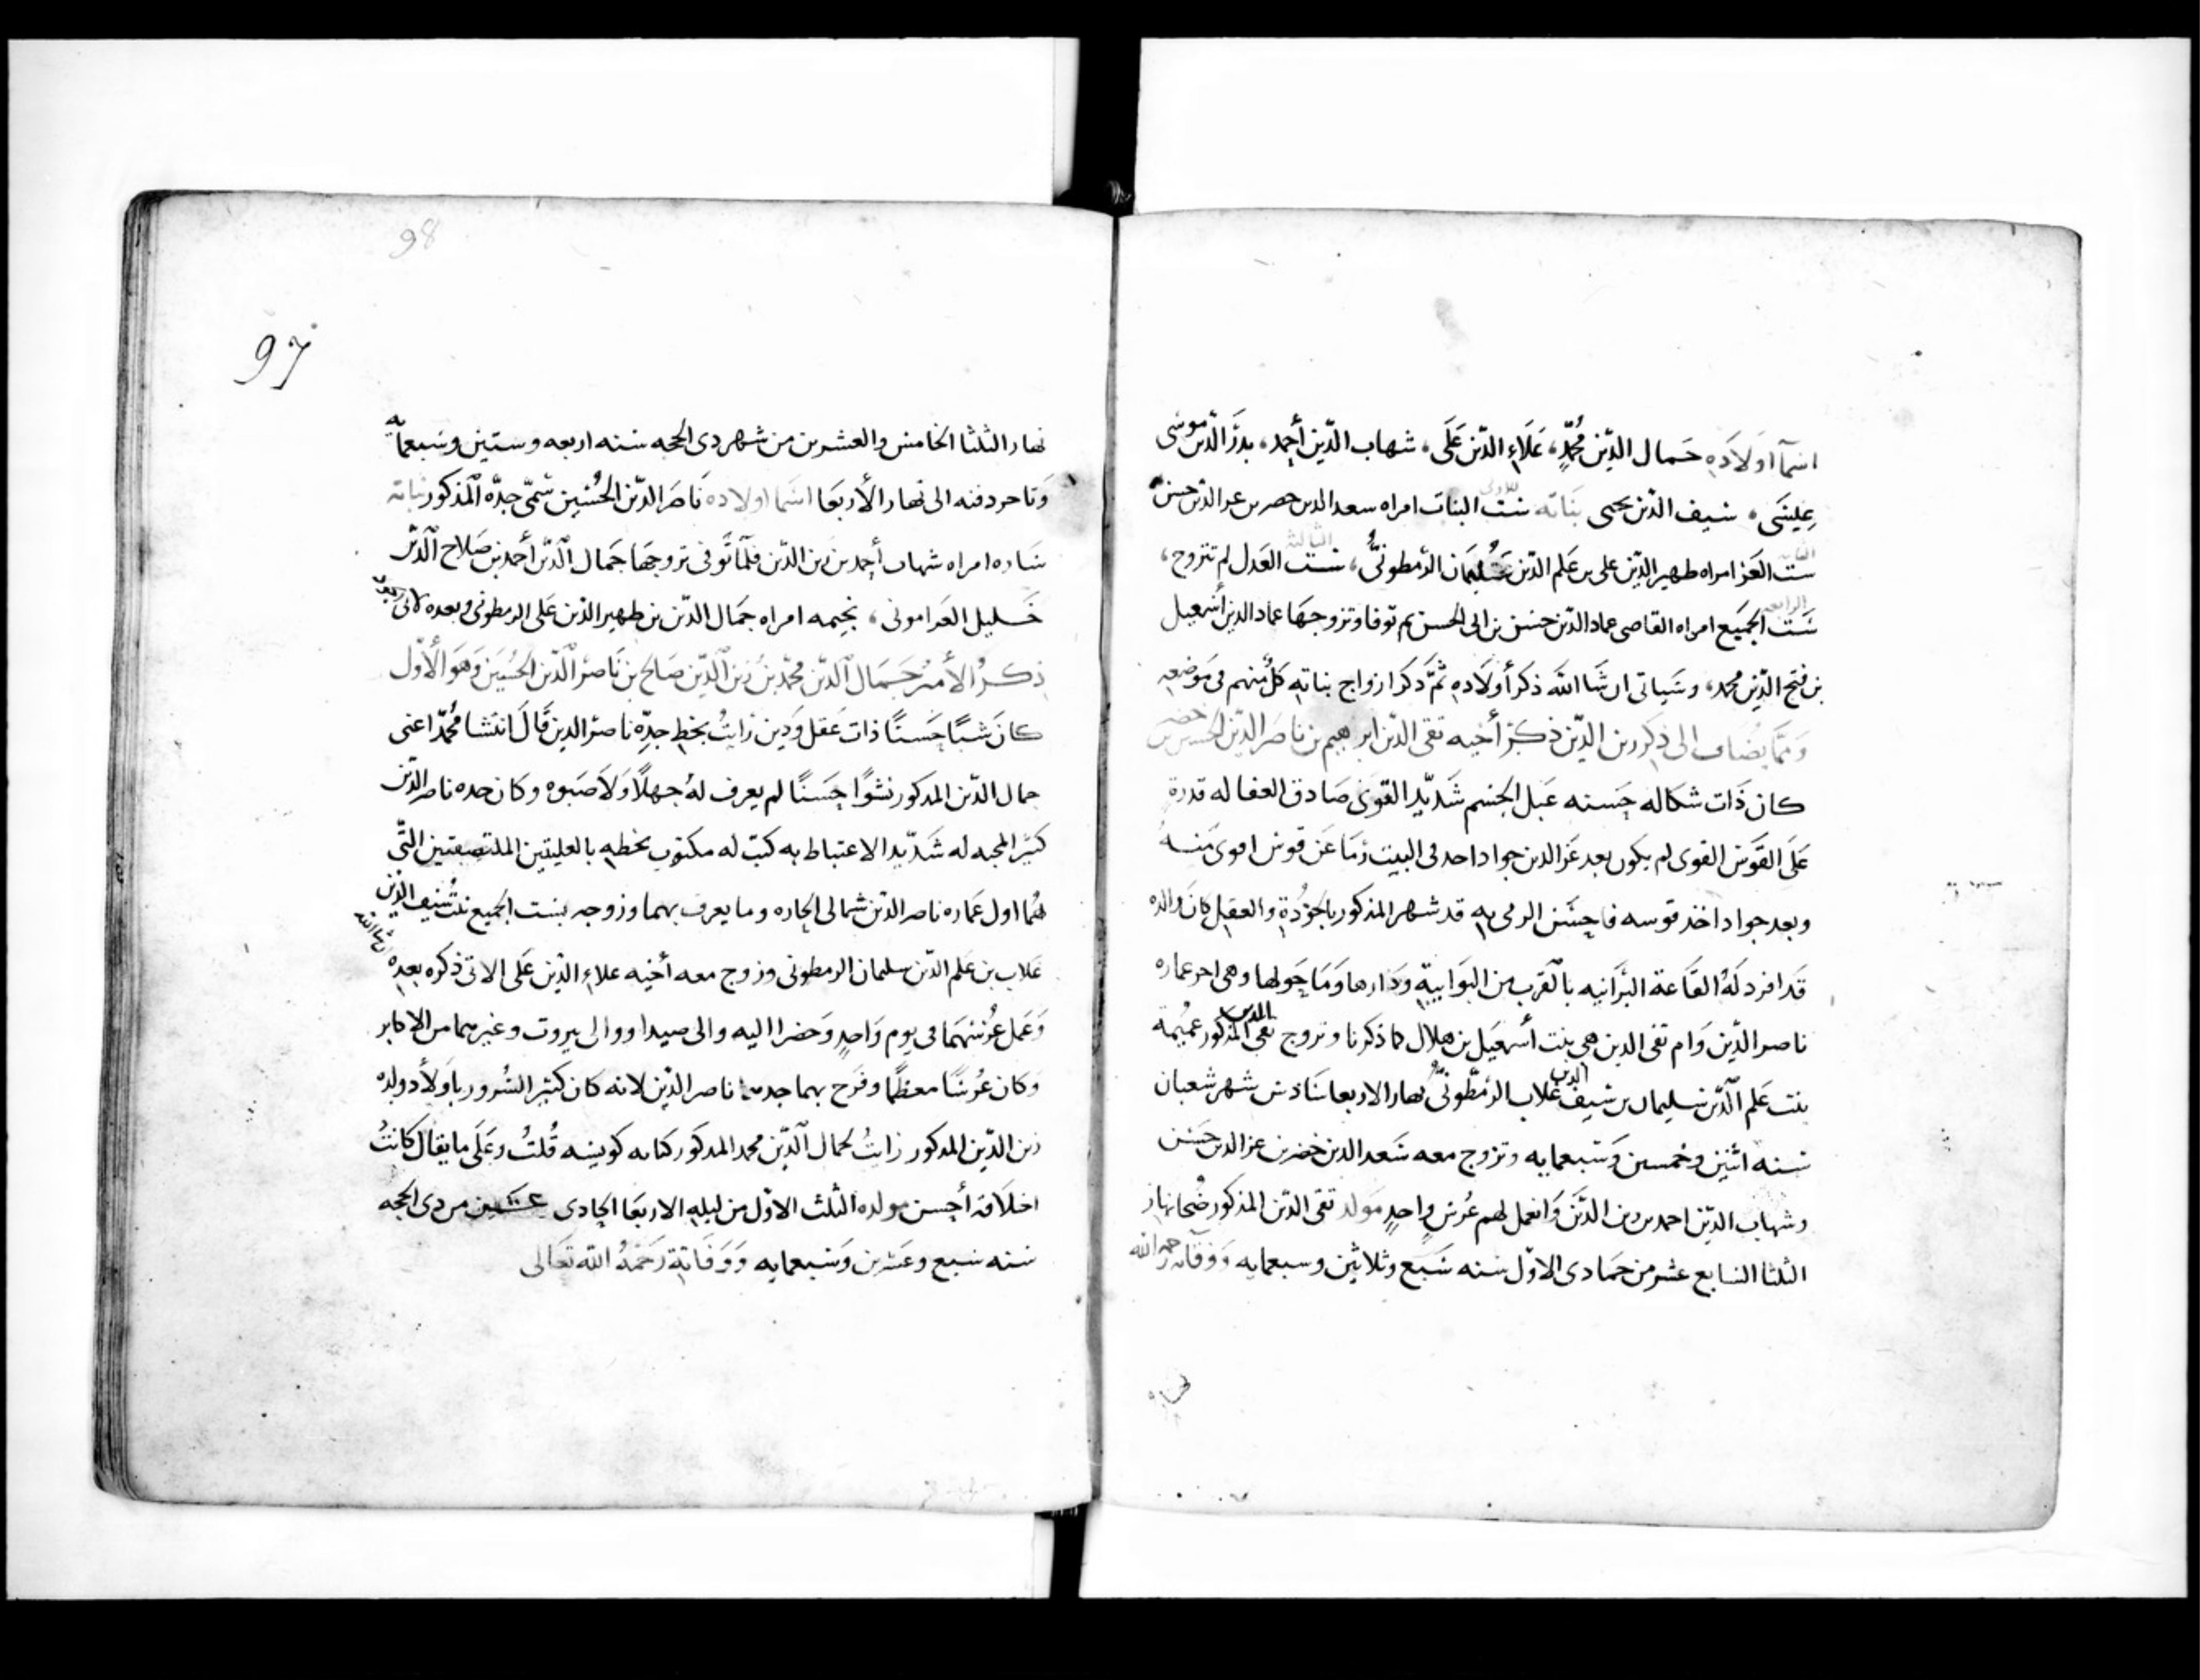 اسمآ اولاده جمال الدين محمد، علاء الدين على، شهاب الدين أحمد، بدر الدين موسى
عيسى، سيف الدين يحيى بناته ست البنات امراه سعد الدين خضر بن عز الدين حسن
الاولى
ست العز امراه ظهير الدين على بن علم الدين سليمان الرمطونى، ست العدل لم تتزوج،
الثانيه
الثالثة
ست الجميع امراه القاضى عماد الدين حسن بن ابى الحسن ثم توفا وتزوجها عماد الدين أسمعيل
الرابعه
بن فتح الدين محمد، وسياتى ان شا الله ذكر أولاده ثم ذكر ازواج بناته كل منهم فى موضعه
ومما يضاف الى ذكر زين الدين ذكر أخيه تقى الدين ابرهيم بن ناصر الدين الحسين بن خضر
كان ذات شكاله حسنه عبل الجسم شديد القوى صادق العفا له قدرة
على القوس القوى لم يكون بعد عز الدين جواد احد فى البيت رما عن قوس اقوى منه
وبعد جواد اخذ قوسه فاحسن الرمى به قد شهر المذكور بالجودة والعقل كان والده
قد افرد له القاعة البرانيه بالقرب من البوابية ودارها وما حولها وهى اخر عماره
ناصر الدين وام تقى الدين هى بنت أسمعيل بن هلال كما ذكرنا وتزوج تقى الدين المذكور عميمة
بنت علم الدين سليمان بن سيف الدين غلاب الرمطونى نهار الاربعا سادس شهر شعبان
سنه اثنين وخمسين وسبعمايه وتزوج معه سعد الدين خضر بن عز الدين حسن
وشهاب الدين احمد بن زين الدين وانعمل لهم عرس واحد مولد تقى الدين المذكور ضحا نهار
الثلثا السابع عشر من جمادى الاول سنه سبع وثلاثين وسبعمايه ووفاته رحمه الله
نهار
98
97
نهار الثلثا الخامس والعشرين من شهر ذى الحجه سنه اربعه وستين وسبعمايه
وتاخر دفنه الى نهار الأربعا اسما اولاده ناصر الدين الحسين سمى جده المذكور بناته
ساره امراه شهاب أحمد بن زين الدين فلما توفى تزوجها جمال الدين أحمد بن صلاح الدين
خليل العرامونى، نجيمه امراه جمال الدين بن ظهير الدين على الرمطونى وبعده
ذكر الأمير جمال الدين محمد بن زين الدين صالح بن ناصر الدين الحسين وهو الأول
كان شبا حسنا ذات عقل ودين رايت بخط جده ناصر الدين قال انتشا محمد اعنى
جمال الدين المذكور نشوا حسنا لم يعرف له جهلا ولا صبوه وكان جده ناصر الدين
كثير المحبه له شديد الاعتباط به كتب له مكتوب بخطه بالعليتين الملتصقتين التى
هما اول عماره ناصر الدين شمالى الحاره وما يعرف بهما وزوجه بست الجميع بنت سيف الدين
غلاب بن علم الدين سليمان الرمطونى وزوج معه أخيه علاء الدين على الاتى ذكره بعده ان شا الله
وعمل عرسهما فى يوم واحد وحضر اليه والى صيدا ووالى بيروت وغيرهما من الاكابر
وكان عرسا معظما وفرح بهما جدهما ناصر الدين لانه كان كثير السرور باولاد ولده
زين الدين المذكور رايت لجمال الدين محمد المذكور كتابه كويسه قلت وعلى ما يقال كانت
اخلاقه أحسن مولده الثلث الاول من ليله الاربعا الحادى عشرين من ذى الحجه
سنه سبع وعشرين وسبعمايه ووفاته رحمه الله تعالى